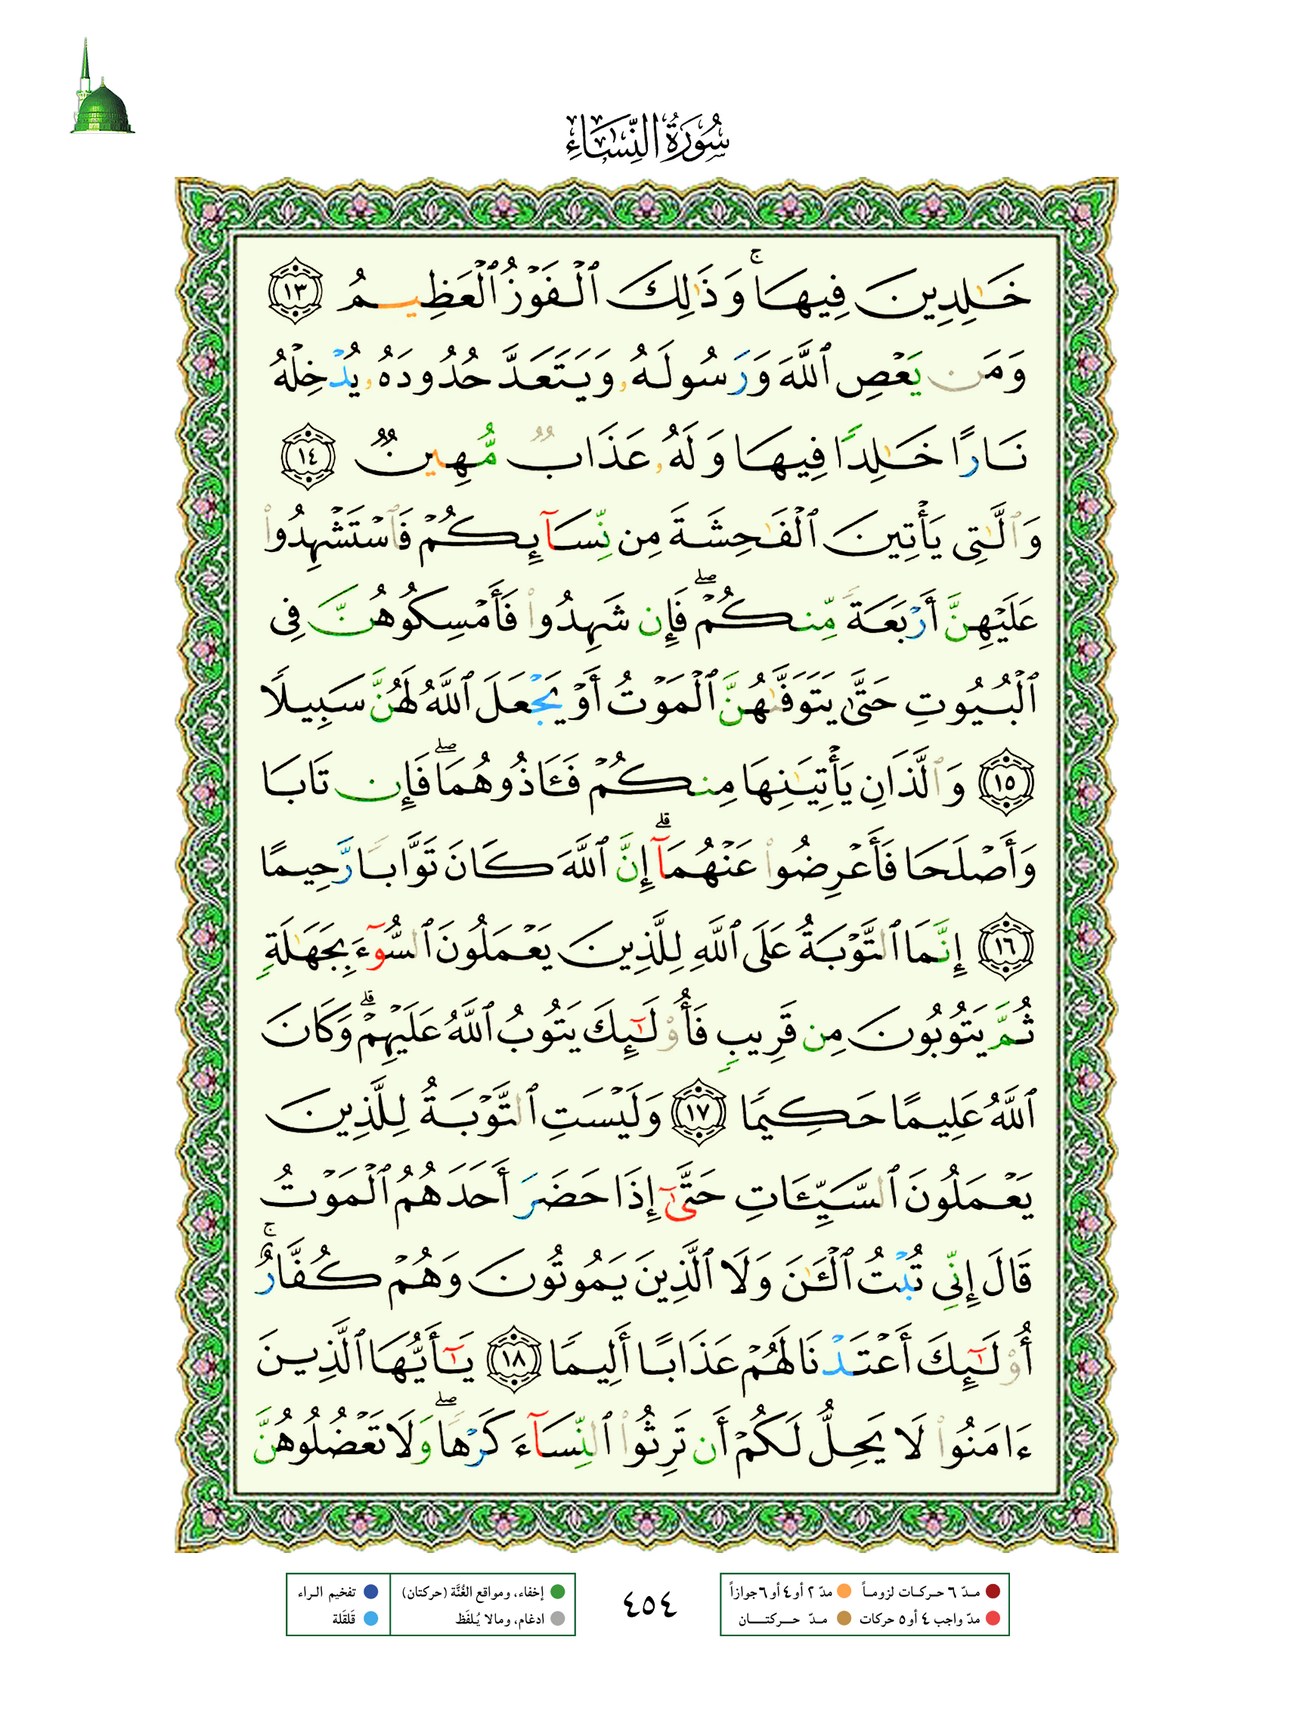 سُورَةُ النِّسَاءِ
خَـٰلِدِينَ فِيهَاۚ وَذَٰلِكَ ٱلْفَوْزُ ٱلْعَظِيمُ ١٣
وَمَن يَعْصِ ٱللَّهَ وَرَسُولَهُۥ وَيَتَعَدَّ حُدُودَهُۥ يُدْخِلْهُ
نَارًا خَـٰلِدًا فِيهَا وَلَهُۥ عَذَابٌ مُّهِينٌ ١٤
وَٱلَّـٰتِى يَأْتِينَ ٱلْفَـٰحِشَةَ مِن نِّسَآئِكُمْ فَٱسْتَشْهِدُوا۟
عَلَيْهِنَّ أَرْبَعَةً مِّنكُمْۖ فَإِن شَهِدُوا۟ فَأَمْسِكُوهُنَّ فِى
ٱلْبُيُوتِ حَتَّىٰ يَتَوَفَّىٰهُنَّ ٱلْمَوْتُ أَوْ يَجْعَلَ ٱللَّهُ لَهُنَّ سَبِيلًا
١٥ وَٱلَّذَانِ يَأْتِيَـٰنِهَا مِنكُمْ فَـَٔاذُوهُمَاۖ فَإِن تَابَا
وَأَصْلَحَا فَأَعْرِضُوا۟ عَنْهُمَآۗ إِنَّ ٱللَّهَ كَانَ تَوَّابًا رَّحِيمًا
١٦ إِنَّمَا ٱلتَّوْبَةُ عَلَى ٱللَّهِ لِلَّذِينَ يَعْمَلُونَ ٱلسُّوٓءَ بِجَهَـٰلَةٍ
ثُمَّ يَتُوبُونَ مِن قَرِيبٍ فَأُو۟لَـٰٓئِكَ يَتُوبُ ٱللَّهُ عَلَيْهِمْۗ وَكَانَ
ٱللَّهُ عَلِيمًا حَكِيمًا ١٧ وَلَيْسَتِ ٱلتَّوْبَةُ لِلَّذِينَ
يَعْمَلُونَ ٱلسَّيِّـَٔاتِ حَتَّىٰٓ إِذَا حَضَرَ أَحَدَهُمُ ٱلْمَوْتُ
قَالَ إِنِّى تُبْتُ ٱلْـَٔـٰنَ وَلَا ٱلَّذِينَ يَمُوتُونَ وَهُمْ كُفَّارٌۚ
أُو۟لَـٰٓئِكَ أَعْتَدْنَا لَهُمْ عَذَابًا أَلِيمًا ١٨ يَـٰٓأَيُّهَا ٱلَّذِينَ
ءَامَنُوا۟ لَا يَحِلُّ لَكُمْ أَن تَرِثُوا۟ ٱلنِّسَآءَ كَرْهًاۖ وَلَا تَعْضُلُوهُنَّ
مدّ ٦ حركات لزوماً مدّ ٢ أو ٤ أو ٦ جوازاً
مدّ واجب ٤ أو ٥ حركات مدّ حركتان
٤٥٤
إخفاء، ومواقع الغُنَّة (حركتان) تفخيم الراء
ادغام، ومالا يُلفَظ قلقلة